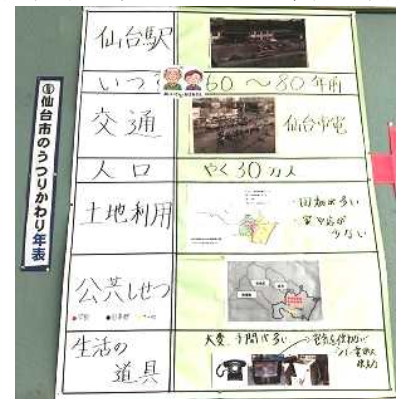 ⑪仙台市のうつりかわり年表
仙台駅
いつ
60～80年前
交通
仙台市電
人口
やく30万人
土地利用
・田畑が多い
・家や店が
少ない
公共しせつ
生活の
道具
大変、手間が多い